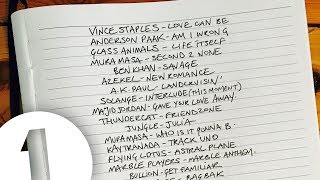 VINCE STAPLES - LOVE CAN BE
ANDERSON PAAK - AM I WRONG
GLASS ANIMALS - LIFE ITSELF
MURA MASA - SECOND 2 NONE
BEN KHAN - SAVAGE
AZEKEL - NEW ROMANCE
A.K. PAUL - LANDCRUISIN'
SOLANGE - INTERLUDE (THIS MOMENT)
MAJID JORDAN - GAVE YOUR LOVE AWAY
THUNDERCAT - FRIENDZONE
JUNGLE - JULIA
MURA MASA - WHO IS IT GUNNA B
KAYTRANADA - TRACK UNO
FLYING LOTUS - ASTRAL PLANE
MARBLE PLAYERS - MARBLE ANTHEM
BULLION - GET FAMILIAR
- BAGBAK
1